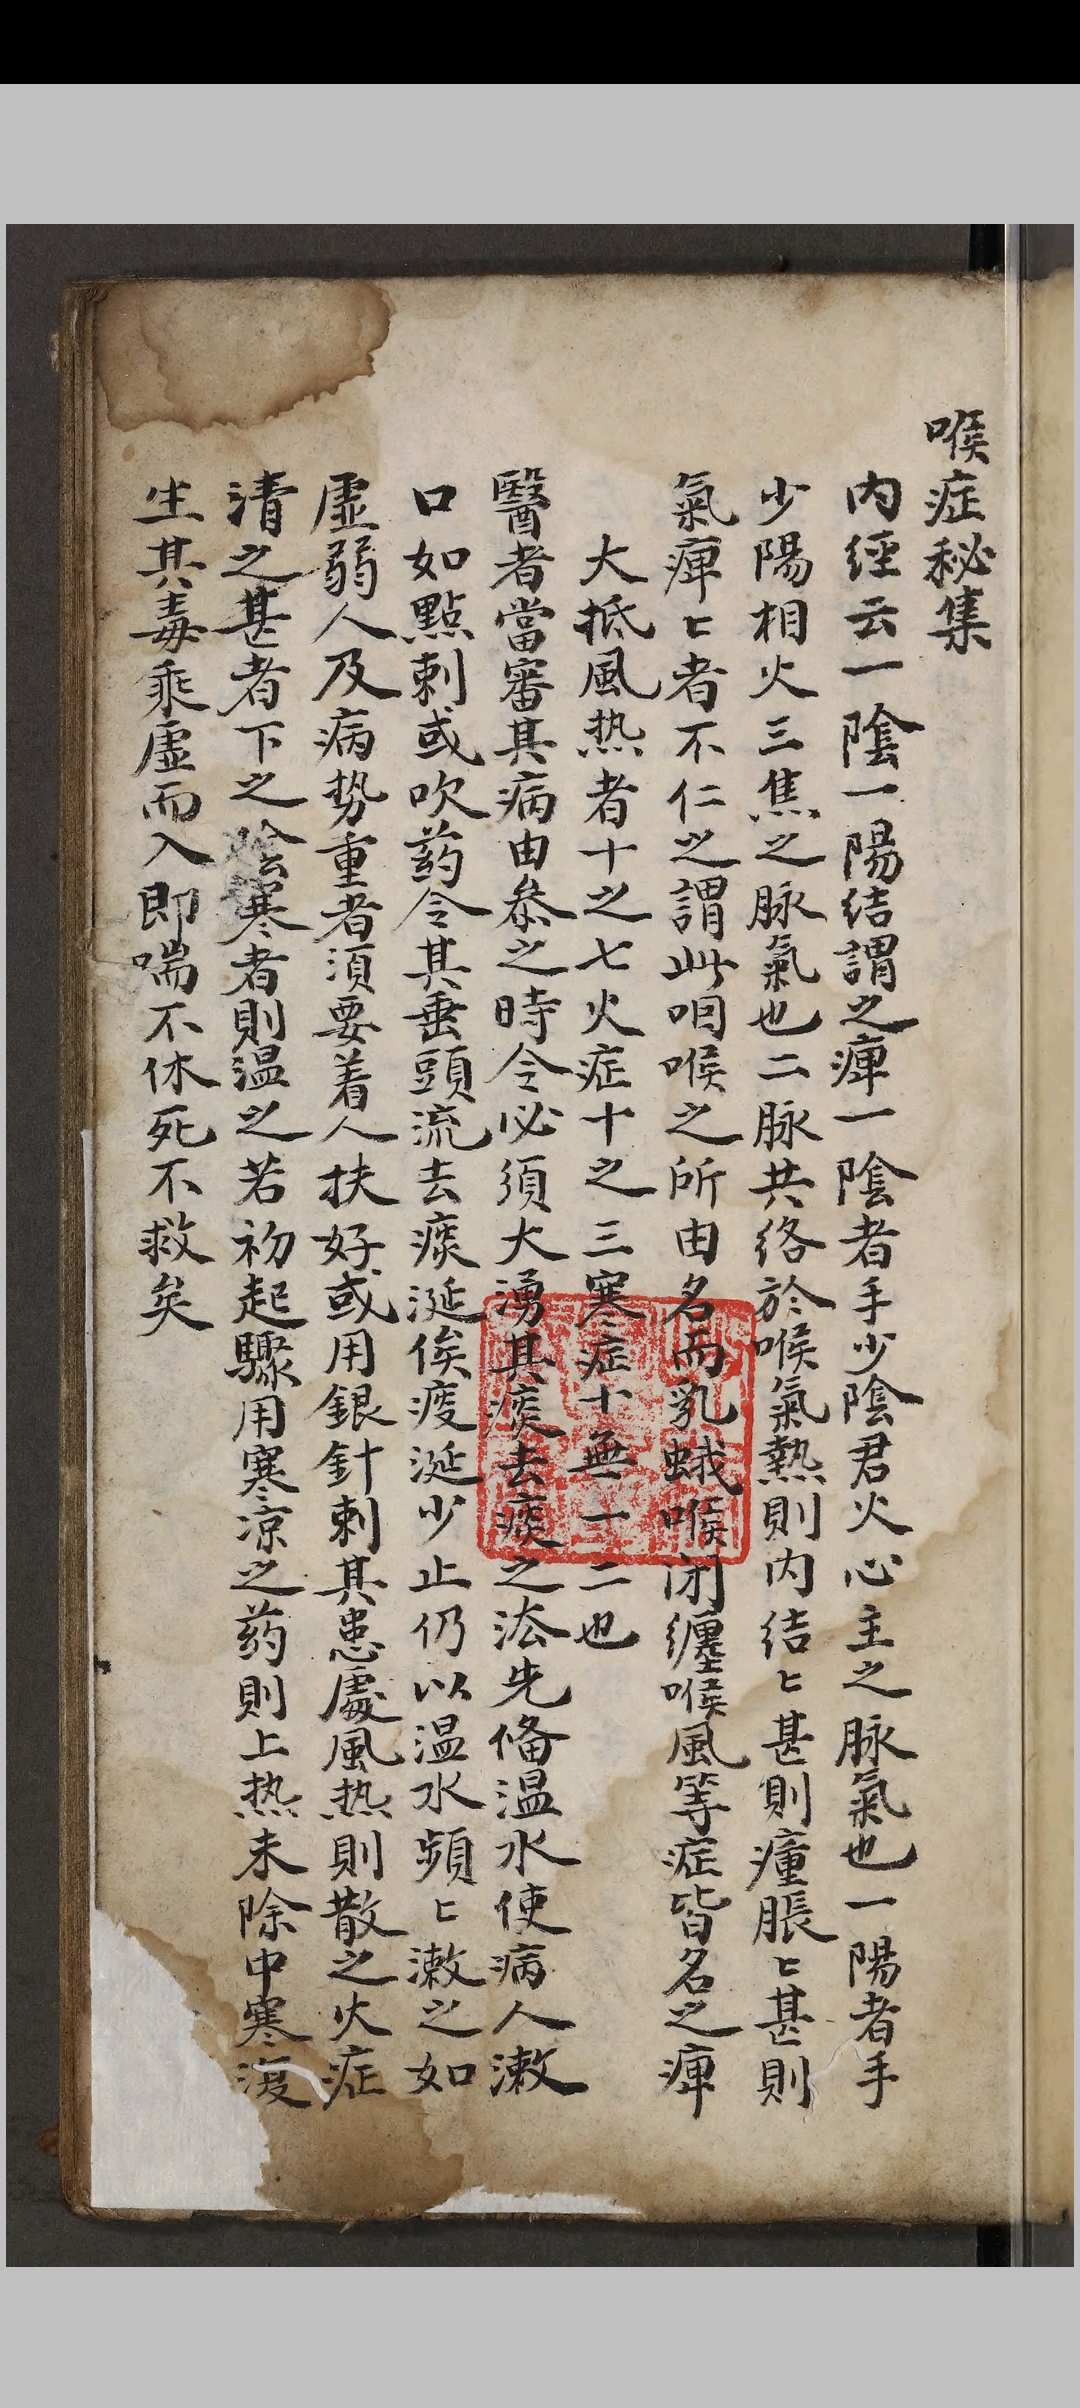 喉症秘集
内經云一陰一陽結謂之痺一陰者手少陰君火心主之脉氣也一陽者手
少陽相火三焦之脉氣也二脉共络於喉氣熱則内结匕甚則瘇脹匕甚則
氣痺匕者不仁之謂此咽喉之所由名而乳蛾喉闭纏喉風等症皆名之痺
大抵風热者十之七火症十之三寒症十無一二也
醫者當審其病由叅之時令必須大湧其痰去痰之法先俻温水使病人漱
口如點刺或吹药令其垂頭流去痰涎俟痰涎少止仍以温水頻匕漱之如
虚弱人及病势重者須要着人扶好或用銀針刺其患處風热則散之火症
清之甚者下之陰寒者則温之若初起驟用寒凉之药則上热未除中寒復
生其毒乘虚而入即喘不休死不救矣